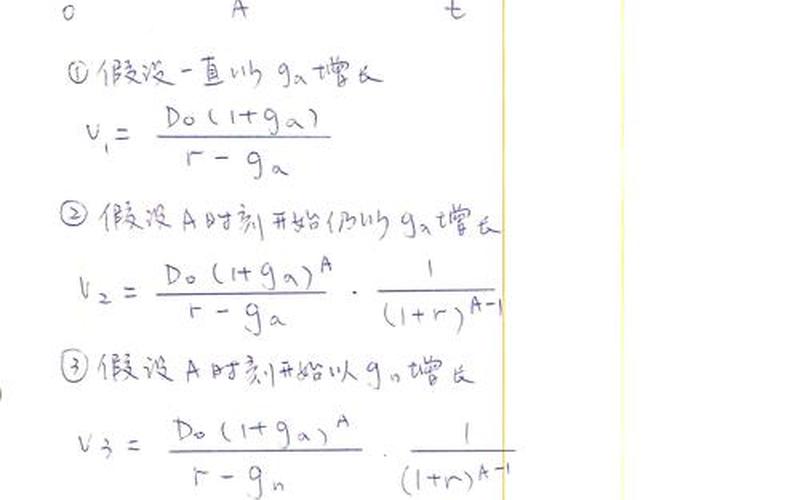 0 A t
① 假设一直以 gₐ 增长
V₁ = D₀(1+gₐ) / (r - gₐ)
② 假设 A 时刻开始仍以 gₐ 增长
V₂ = D₀(1+gₐ)^A / (r - gₐ) · 1 / (1+r)^(A-1)
③ 假设 A 时刻开始以 gₙ 增长
V₃ = D₀(1+gₐ)^A / (r - gₙ) · 1 / (1+r)^(A-1)